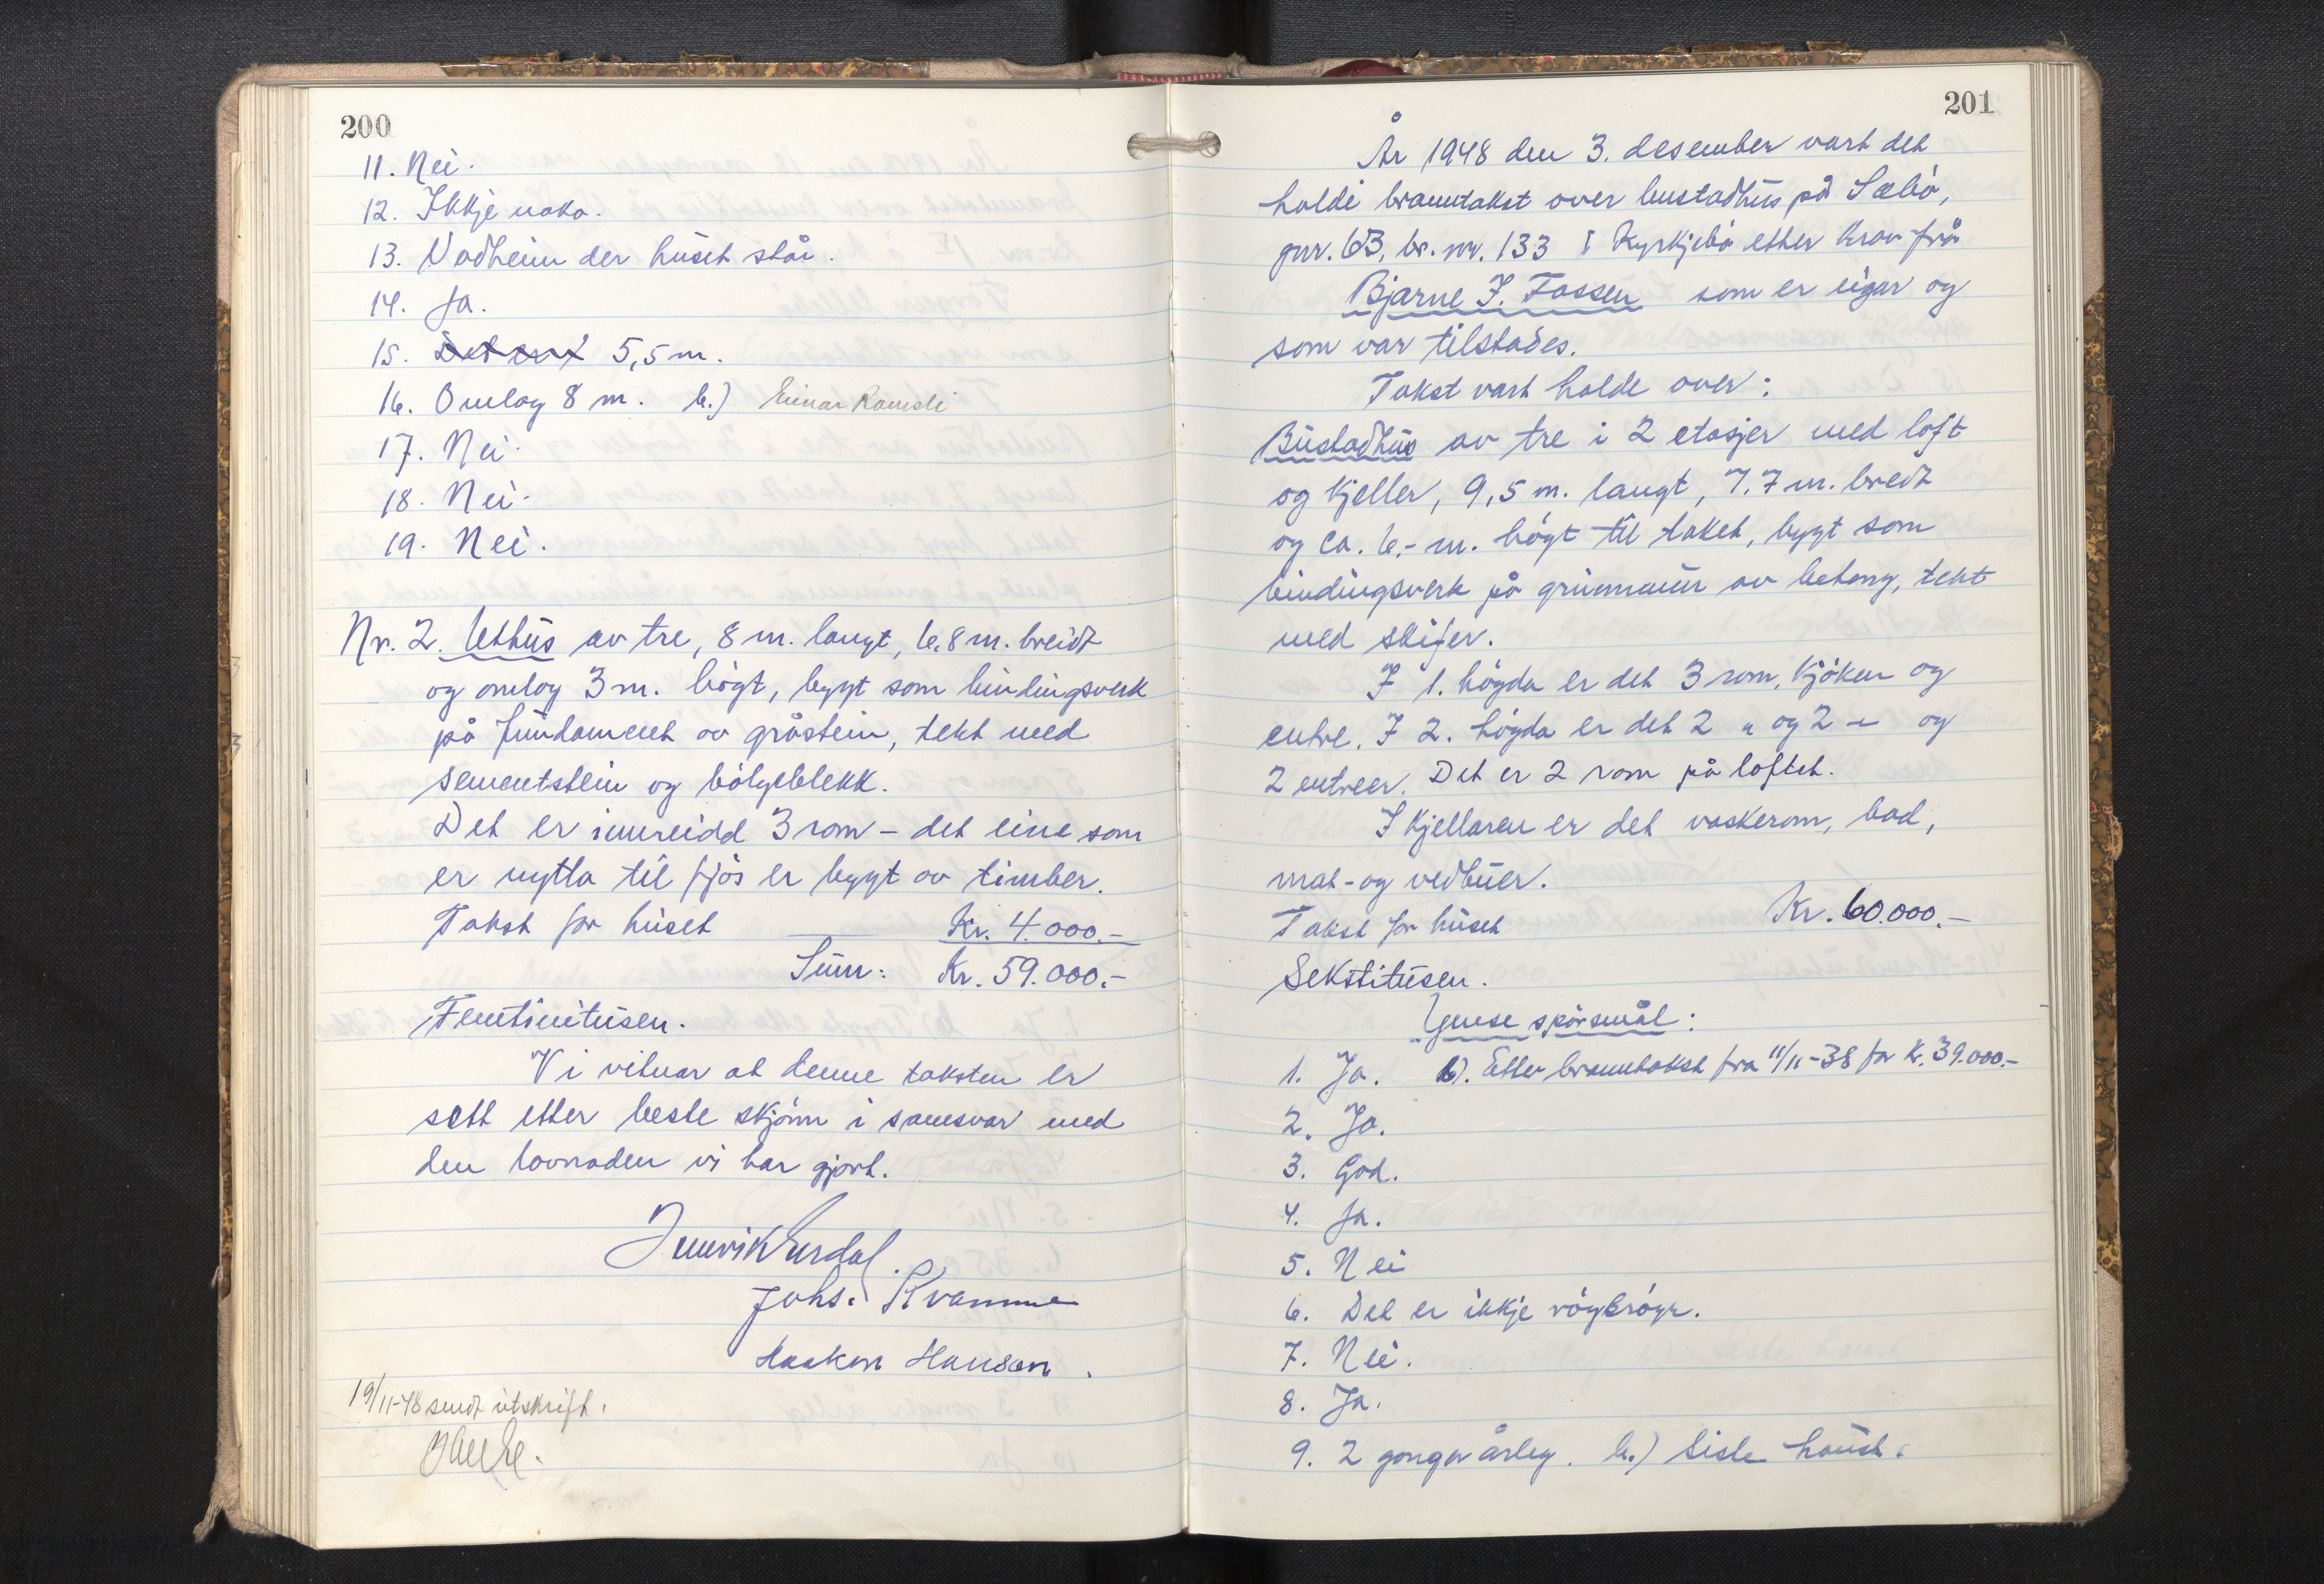 200
11. Nei.
12. Ikkje noko.
13. Vadheim der huset står.
14. Ja.
15. 5,5 m.
16. Omlag 8 m. b.) Einar
17. Nei.
18. Nei.
19. Nei.
Nr. 2. Uthus av tre, 8 m. langt, 6,8 m. breidt
og omlag 3 m. högt, bygt som bindingsverk
på fundament av gråstein, tekt med
sementstein og bölgeblekk.
Det er innreidd 3 rom - det eine som
er nytta til fjös er bygt av timber.
Takst for huset Kr. 4.000.-
Sum: Kr. 59.000.-
Femtinitusen.
Vi vitnar at denne taksten er
sett etter beste skjönn i samsvar med
den lovnaden vi har gjort.
Johs. Kvamme
Haakon Hansen.
19/11-48 sendt utskrift.
201
År 1948 den 3. desember vart det
halde branntakst over bustadhus på Sæbö,
gnr. 63, br. nr. 133 i Kyrkjebö etter krav frå
Bjarne J. Fossen som er eigar og
som var tilstades.
Takst vart halde over:
Bustadhus av tre i 2 etasjer med loft
og kjeller, 9,5 m. langt, 7,7 m. bredt
og ca. 6,- m. högt til taket, bygt som
bindingsverk på grunnmur av betong, tekt
med skifer.
I 1. högda er det 3 rom, kjöken og
entre. I 2. högda er det 2 " og 2 - og
2 entreer. Det er 2 rom på loftet.
I kjellaren er det vaskerom, bad,
mat- og vedbuer.
Takst for huset Kr. 60.000.-
Sekstitusen.
Ymse spörsmål:
1. Ja. b). Etter branntakst fra 11/11-38 for kr. 39.000.-
2. Ja.
3. God.
4. Ja.
5. Nei
6. Det er ikkje
7. Nei.
8. Ja.
9. 2 gonger årleg. b.) Siste haust.